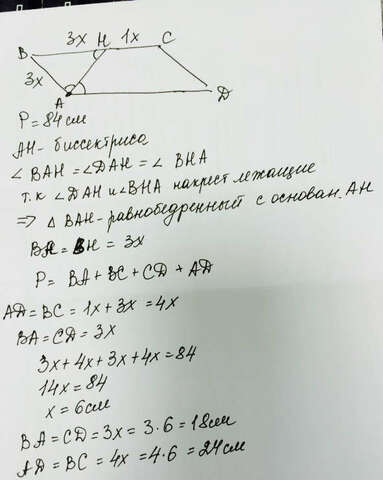 3x H 1x C
B
3x
A D
P = 84 см
AH - биссектриса
∠ BAH = ∠ DAH = ∠ BHA
т.к ∠ DAH и ∠ BHA накрест лежащие
=> △ BAH - равнобедренный с основан. AH
BA = BH = 3x
P = BA + BC + CD + AD
AD = BC = 1x + 3x = 4x
BA = CD = 3x
3x + 4x + 3x + 4x = 84
14x = 84
x = 6 см
BA = CD = 3x = 3 · 6 = 18 см
AD = BC = 4x = 4 · 6 = 24 см